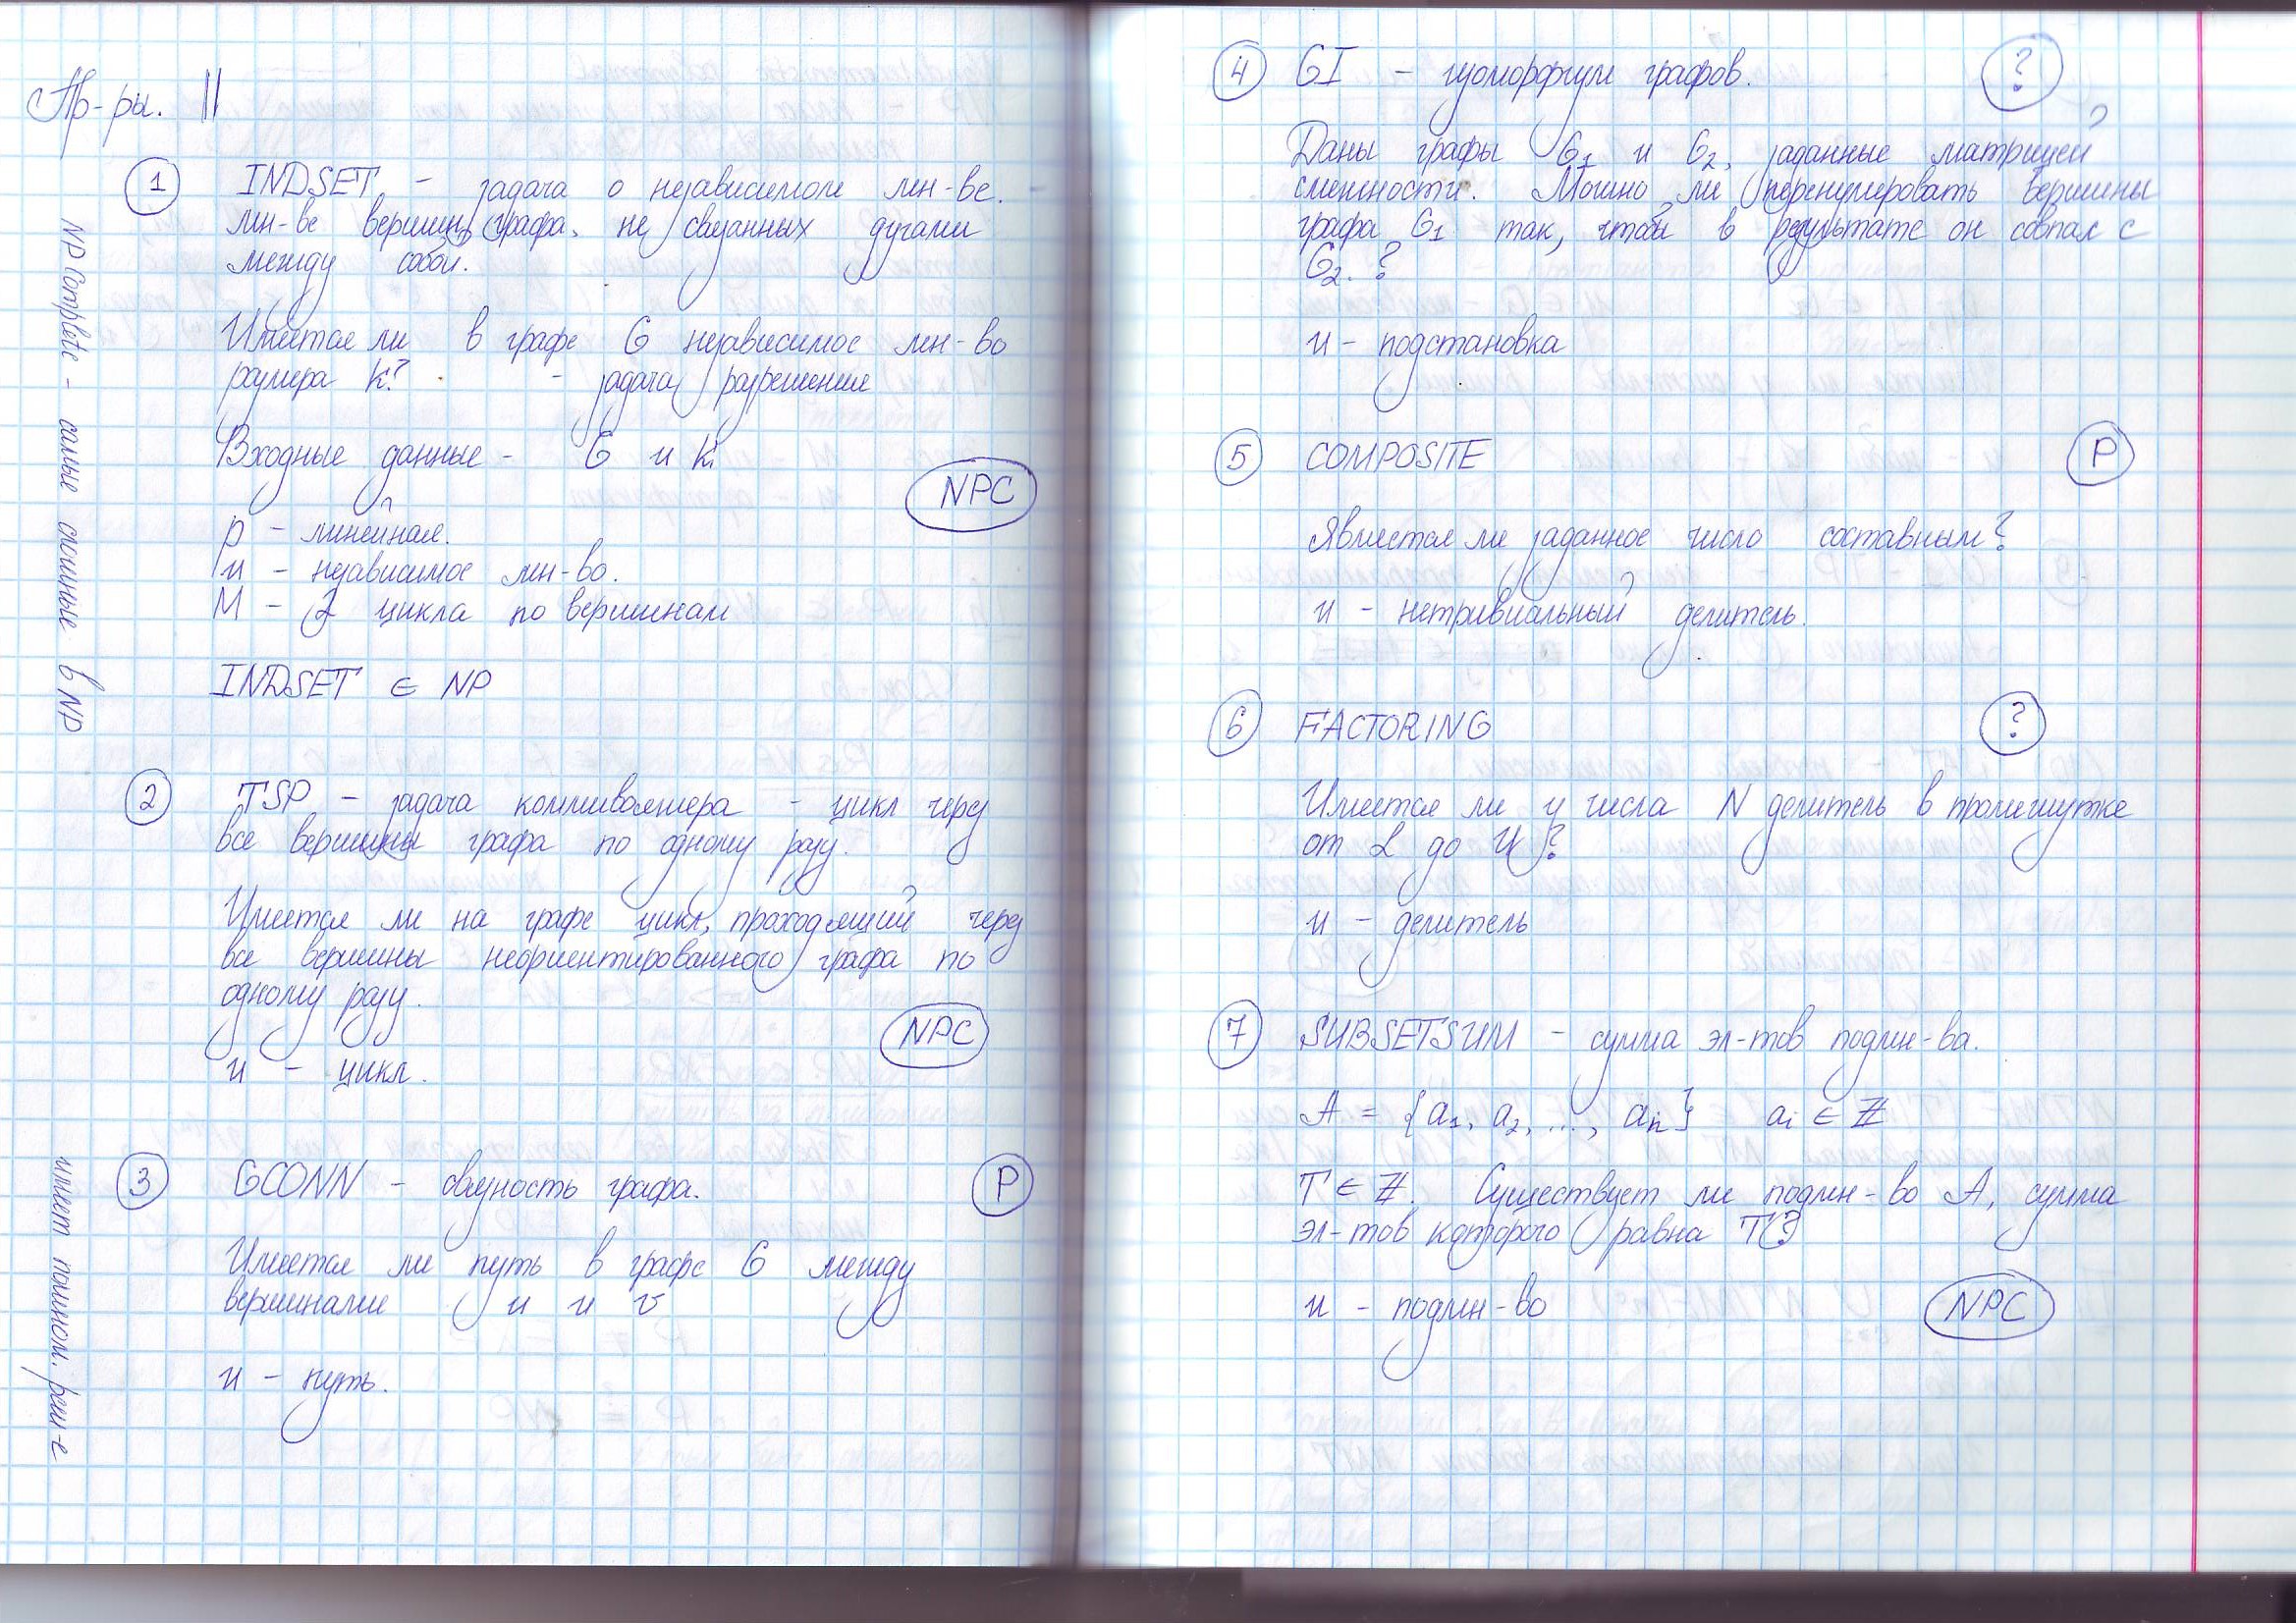 Пр-ры.
① INDSET - задача о независимом мн-ве. -
мн-ве вершин графа, не связанных дугами
между собой.
Имеется ли в графе G независимое мн-во
размера k? - задача разрешения
Входные данные - G и k
NPC
p - линейная.
u - независимое мн-во.
M - 2 цикла по вершинам
INDSET ∈ NP
② TSP - задача коммивояжера - цикл через
все вершины графа по одному разу.
Имеется ли на графе цикл, проходящий через
все вершины неориентированного графа по
одному разу.
NPC
u - цикл.
③ GCONN - связность графа. P
Имеется ли путь в графе G между
вершинами u и v
u - путь.
NP complete - самые сложные в NP
имеет полином. реш-е
④ GI - изоморфизм графов. ?
Даны графы G₁ и G₂, заданные матрицей
смежности. Можно ли перенумеровать вершины
графа G₁ так, чтобы в результате он совпал с
G₂. ?
u - подстановка
⑤ COMPOSITE P
Является ли заданное число составным?
u - нетривиальный делитель.
⑥ FACTORING ?
Имеется ли у числа N делитель в промежутке
от L до U?
u - делитель
⑦ SUBSETSUM - сумма эл-тов подмн-ва.
A = {a₁, a₂, ..., aₙ} aᵢ ∈ ℤ
T ∈ ℤ. Существует ли подмн-во A, сумма
эл-тов которого равна T?
u - подмн-во NPC